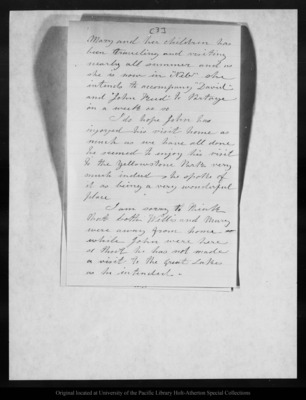 (3)
Mary and her children has
been traveling and visiting
nearly all summer and as
she is now in she
intends to accompany David
and "John Reid" to Portage
in a week or so
I do hope John has
injoyed his visit home as
much as we have all done
he seemed to enjoy his visit
to the Yellowstone Park very
much indeed & he spoke of
it as being a very wonderful
place
I am sorry to think
that both Willis and Mary
were away from home
while John were here
& that he has not made
a visit to the Great Lakes
as he intended -
Original located at University of the Pacific Library Holt-Atherton Special Collections